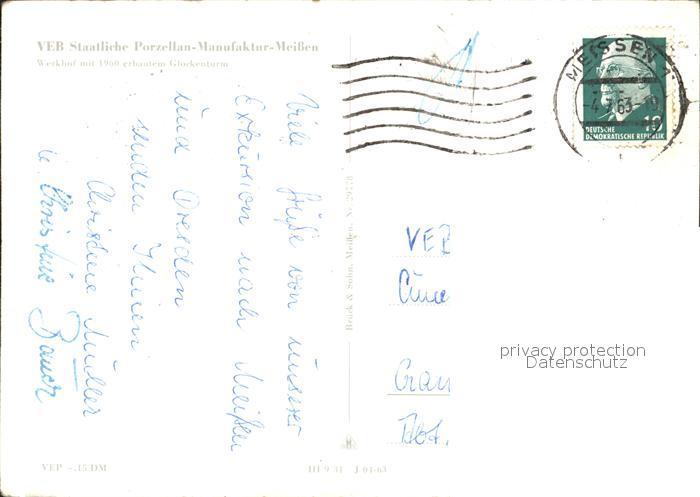 VEB Staatliche Porzellan-Manufaktur-Meißen
Werkhof mit 1960 erbautem Glockenturm
Viele Grüße von unserer
Exkursion nach Meißen
und Dresden
senden Ihnen
Christine Müller
u. Christine Bauer
VEP -.15 DM
III 9 31 J 01-63
Brück & Sohn, Meißen, Nr.
MEISSEN 1
-4.7.63-10
DEUTSCHE
DEMOKRATISCHE REPUBLIK
10
VEB
Abt.
privacy protection
Datenschutz